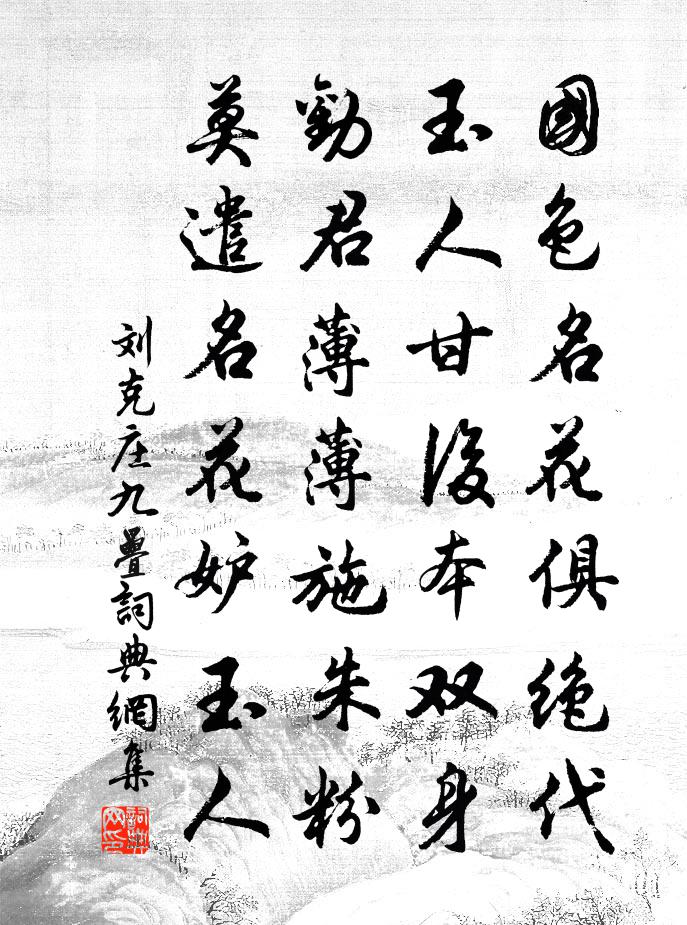 國色名花俱绝代
玉人甘後本双身
勸君薄薄施朱粉
莫遣名花妒玉人
刘克庄九疊詞典網集
詞典
网